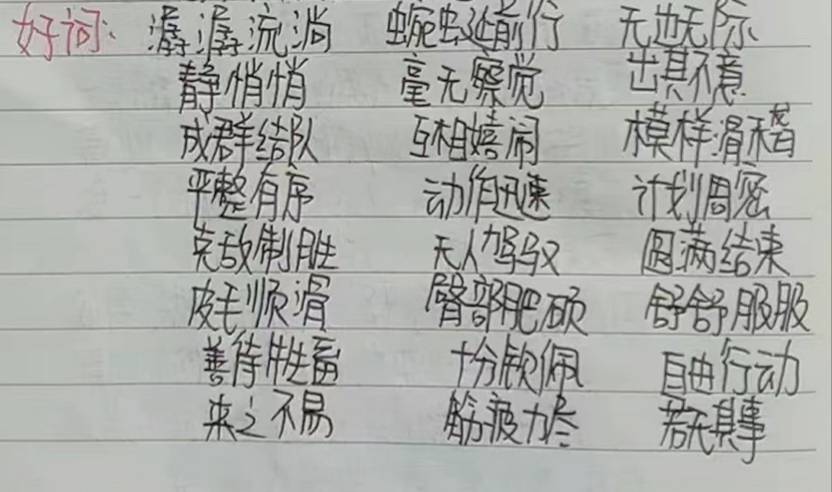 好词: 潺潺流淌 蜿蜒前行 无边无际
静悄悄 毫无察觉 出其不意
成群结队 互相嬉闹 模样滑稽
平整有序 动作迅速 计划周密
克敌制胜 无人驾驭 圆满结束
皮毛顺滑 臀部肥硕 舒舒服服
善待牲畜 十分钦佩 自由行动
来之不易 筋疲力尽 若无其事